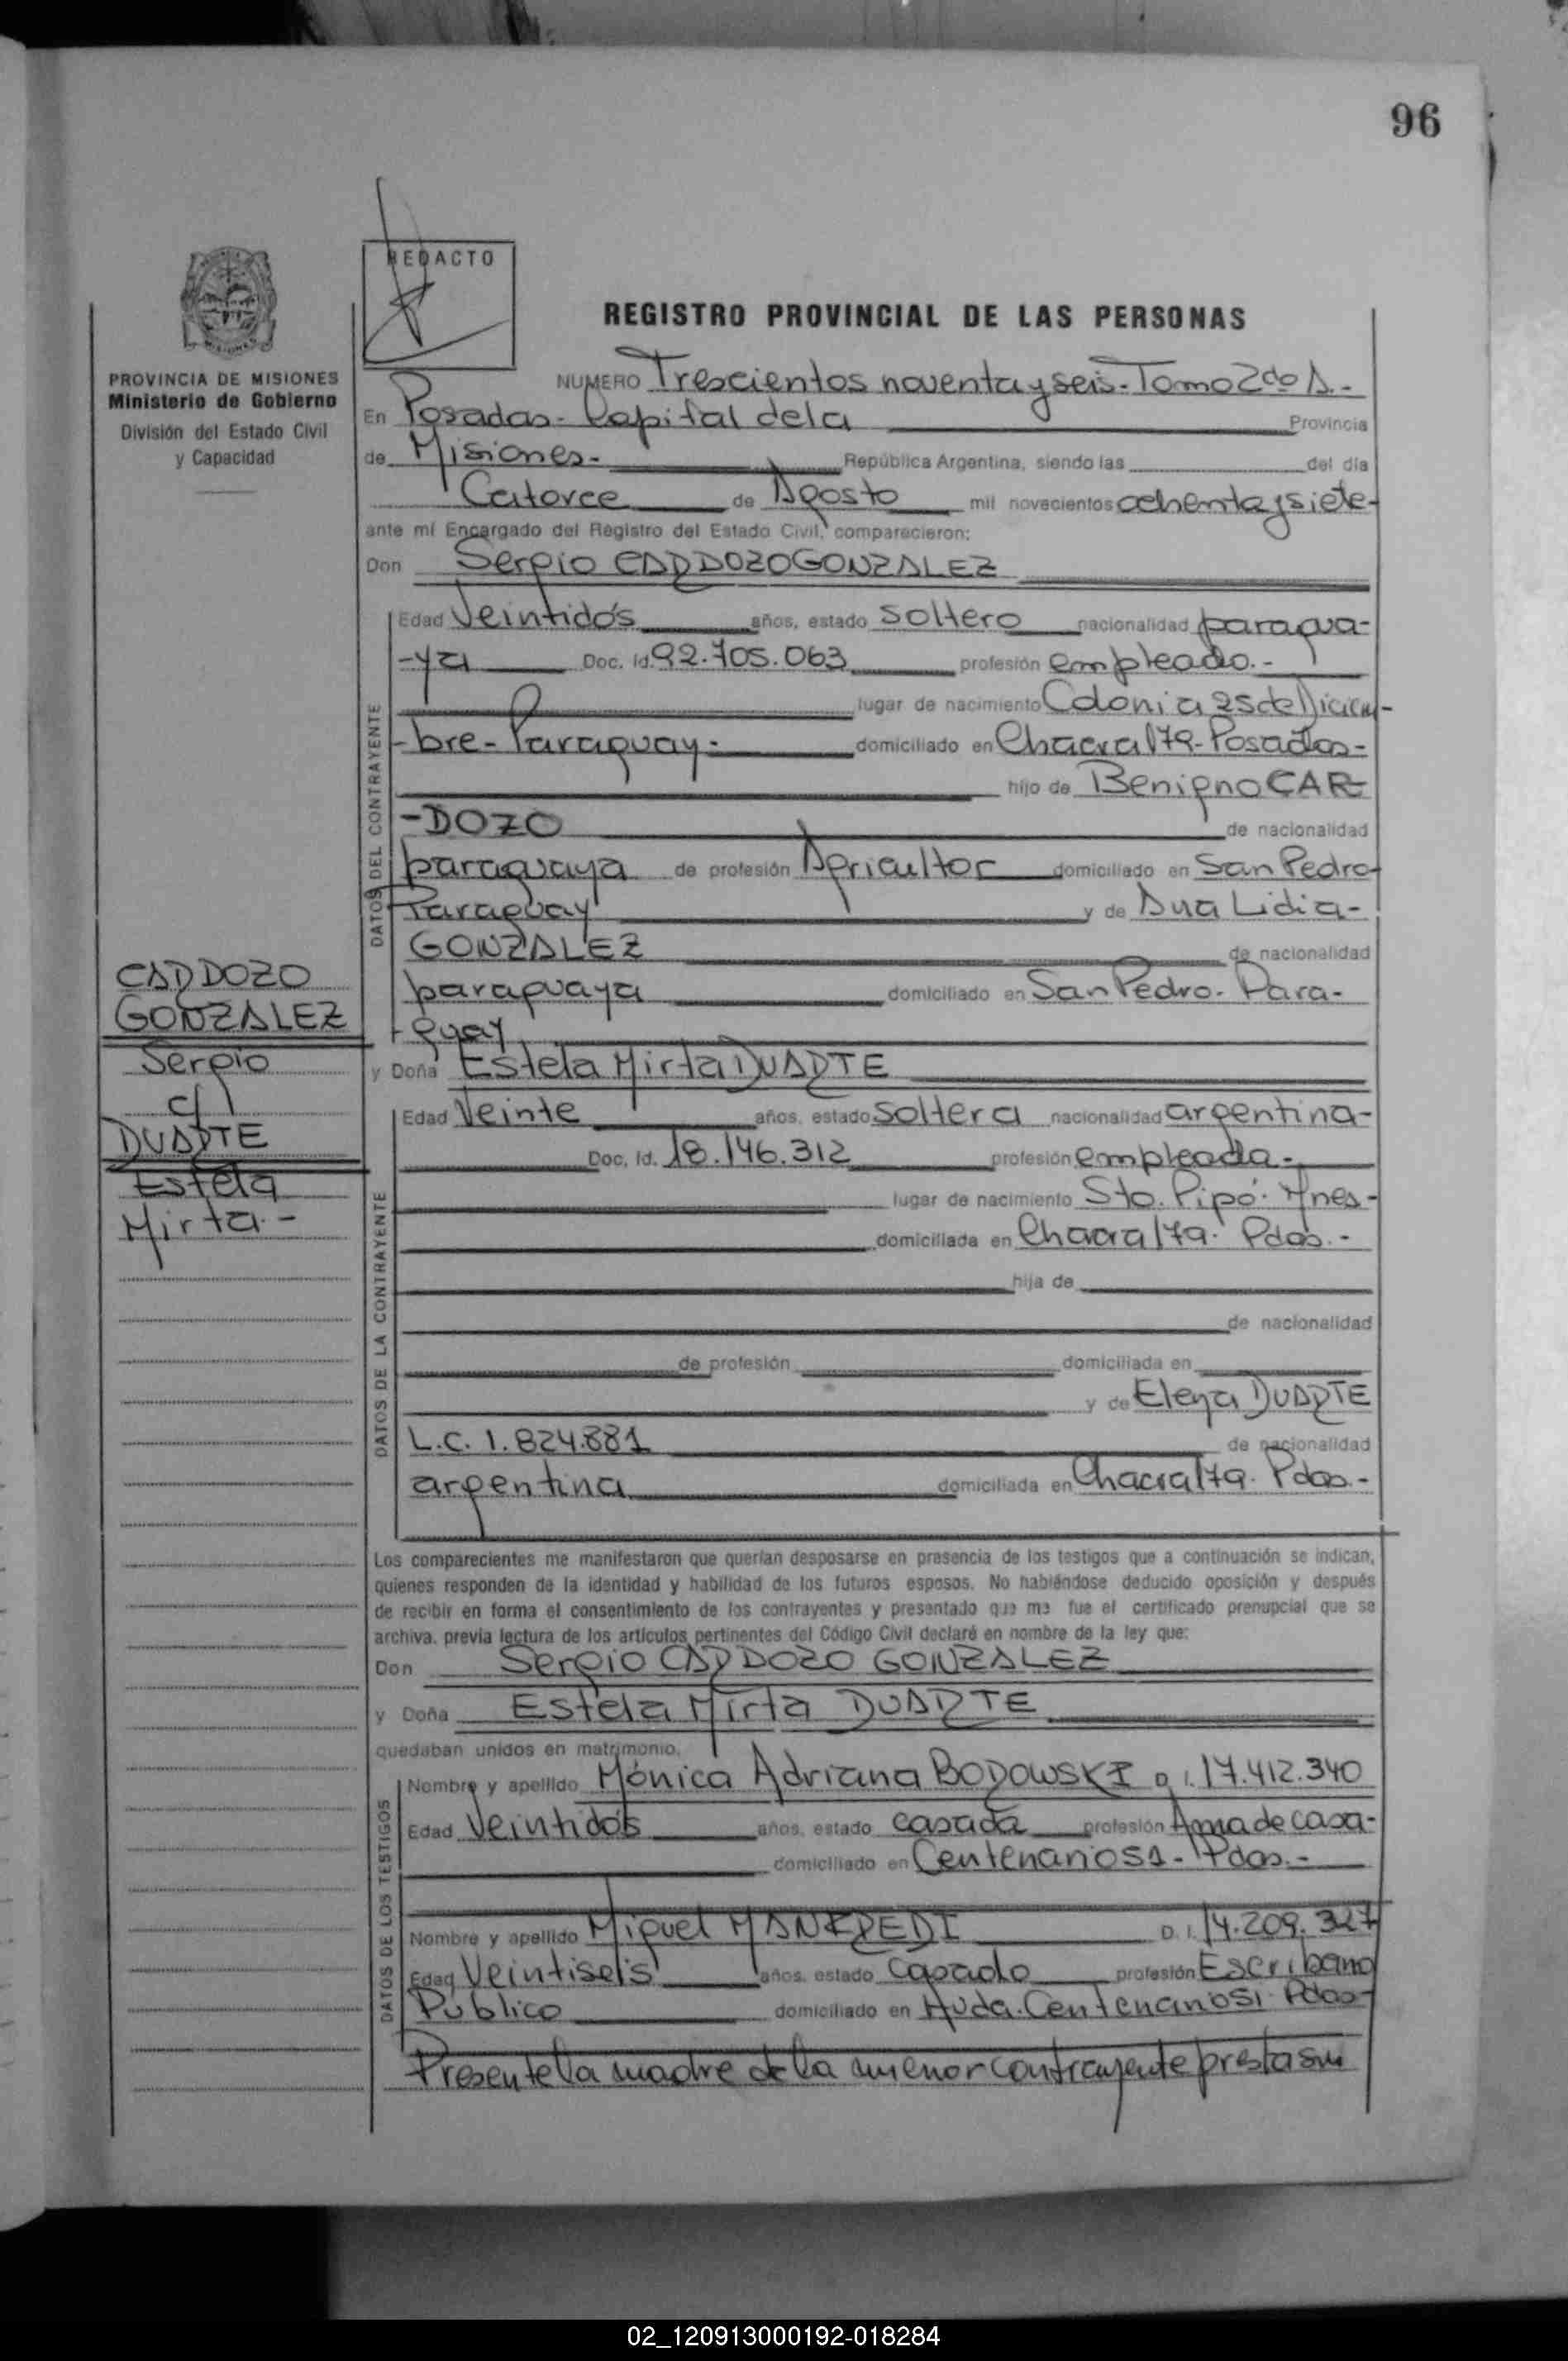 96
REDACTO
REGISTRO PROVINCIAL DE LAS PERSONAS
PROVINCIA DE MISIONES
Ministerio de Gobierno
División del Estado Civil
y Capacidad
NUMERO Trescientos noventa y seis - Tomo 2do A.-
En Posadas - Capital de la Provincia
de Misiones.- República Argentina, siendo las del día
Catorce de Agosto mil novecientos ochenta y siete-
ante mí Encargado del Registro del Estado Civil, comparecieron:
Don Sergio CARDOZO GONZALEZ
DATOS DEL CONTRAYENTE
Edad Veintidós años, estado soltero nacionalidad paragua-
-ya Doc. Id. 92.705.063 profesión empleado.-
lugar de nacimiento Colonia 25 de Diciem-
-bre - Paraguay.- domiciliado en Chacra 179 - Posadas-
hijo de Benigno CAR-
-DOZO de nacionalidad
paraguaya de profesión Agricultor domiciliado en San Pedro-
Paraguay y de Ana Lidia-
GONZALEZ de nacionalidad
paraguaya domiciliado en San Pedro - Para-
-guay
CARDOZO
GONZALEZ
Sergio
c/
DUARTE
Estela
Mirta.-
y Doña Estela Mirta DUARTE
DATOS DE LA CONTRAYENTE
Edad Veinte años, estado soltera nacionalidad argentina-
Doc. Id. 18.146.312 profesión empleada.-
lugar de nacimiento Sto. Pipó. Mnes-
domiciliada en Chacra 179. Pdas.-
hija de
de nacionalidad
de profesión domiciliada en
y de Elena DUARTE
L.C. 1.824.881 de nacionalidad
argentina domiciliada en Chacra 179. Pdas.-
Los comparecientes me manifestaron que querían desposarse en presencia de los testigos que a continuación se indican,
quienes responden de la identidad y habilidad de los futuros esposos. No habiéndose deducido oposición y después
de recibir en forma el consentimiento de los contrayentes y presentado que me fue el certificado prenupcial que se
archiva, previa lectura de los artículos pertinentes del Código Civil declaré en nombre de la ley que:
Don Sergio CARDOZO GONZALEZ
y Doña Estela Mirta DUARTE
quedaban unidos en matrimonio.
DATOS DE LOS TESTIGOS
Nombre y apellido Mónica Adriana BODOWSKI D.I. 17.412.340
Edad Veintidós años, estado casada profesión Ama de casa-
domiciliado en Centenario 51 - Pdas.-
Nombre y apellido Miguel D.I. 14.209.327
Edad Veintiseis años, estado Casado profesión Escribano
Público domiciliado en Avda. Centenario 51 Pdas-
Presente la madre de la menor contrayente presta su
02_120913000192-018284